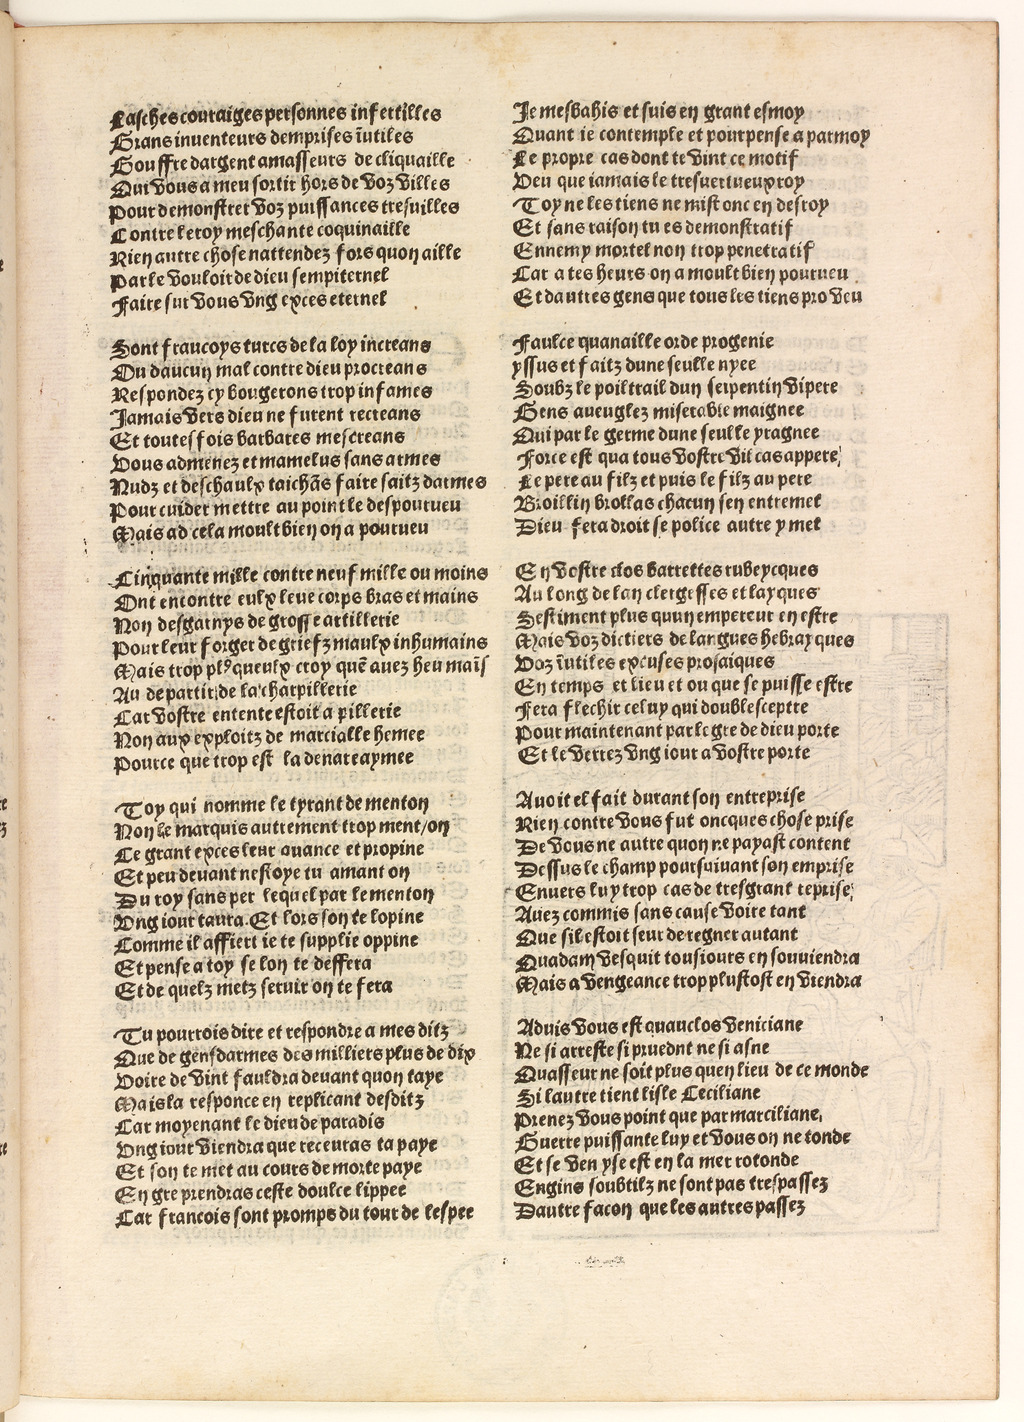 Lasches couraiges personnes infertilles
Grans inuenteurs demprises iutiles
Gouffre dargent amasseurs de cliquaille
Qui vous a meu sortir hors de voz villes
Pour demonstrer voz puissances tresuilles
Contre le roy meschante coquinaille
Rien autre chose nattendez fors quon aille
Par le vouloir de dieu sempiternel
Faire sur vous vng exces eternel
Sont fraucoys turcs de la loy increans
Ou daucun mal contre dieu procreans
Respondez cy bougerons trop infames
Jamais vers dieu ne furent recreans
Et toutesfois barbares mescreans
Vous admenez et mamelus sans armes
Nudz et deschaulx taichãs faire faitz darmes
Pour cuider mettre au point le despourueu
Mais ad cela moult bien on a pourueu
Cinquante mille contre neuf mille ou moins
Ont encontre eulx leue corps bras et mains
Non desgarnys de grosse artillerie
Pour leur forger de griefz maulx inhumains
Mais trop plꝰ queulx croy quẽ auez heu mais
Au departir de la charpillerie
Car vostre entente estoit a pillerie
Non aux exploitz de marcialle hemee
Pource que trop est la denare aymee
Toy qui nomme le tyrant de menton
Non le marquis autrement trop ment/on
Ce grant exces leur auance et propine
Et peu deuant nestoye tu amant on
Du roy sans per lequel par le menton
Vng iour taura. Et lors son te lopine
Comme il affiert ie te supplie oppine
Et pense a toy se lon te deffera
Et de quelz metz seruir on te fera
Tu pourrois dire et respondre a mes ditz
Que de gensdarmes des milliers plus de dix
Voire de vint fauldra deuant quon taye
Mais la responce en replicant desditz
Car moyenant le dieu de paradis
Vng iour viendra que receuras ta paye
Et son te met au cours de morte paye
En gre prendras ceste doulce lippee
Car francois sont promps du tour de lespee
Je mesbahis et suis en grant esmoy
Quant ie contemple et pourpense a par moy
Le propre cas dont te vint ce motif
Veu que iamais le tresuertueux roy
Toy ne les tiens ne mist onc en desroy
Et sans raison tu es demonstratif
Ennemy mortel non trop penetratif
Car a tes heurs on a moult bien pourueu
Et dautres gens que tous les tiens pro veu
Faulce quanaille orde progenie
yssus et faitz dune seulle nyee
Soubz le poiltrail dun serpentin vipere
Gens aueuglez miserable maignee
Qui par le germe dune seulle yragnee
Force est qua tous vostre vil cas appere,
Le pere au filz et puis le filz au pere
Broillin brollas chacun sen entremet
Dieu fera droit se police autre y met
En vostre clos barrettes rubeycques
Au long de lan clergesses et layques
Sestiment plus quun empereur en estre
Mais voz dictiers de langues hebrayques
Voz iutiles excuses prosaiques
En temps et lieu et ou que se puisse estre
Fera flechir celuy qui double sceptre
Pour maintenant par le gre de dieu porte
Et le verrez vng iour a vostre porte
Auoit el fait durant son entreprise
Rien contre vous fut oncques chose prise
De vous ne autre quon ne payast content
Dessus le champ poursuiuant son emprise
Enuers luy trop cas de tresgrant reprise
Auez commis sans cause voire tant
Que sil estoit seur de regner autant
Quadam vesquit tousiours en souuiendra
Mais a vengeance trop plustost en viendra
Aduis vous est quauclos veniciane
Ne si arreste si pruednt ne si asne
Quasseur ne soit plus quen lieu de ce monde
Si lautre tient lisle Ceciliane
Prenez vous point que par marciliane,
Guerre puissante luy et vous on ne tonde
Et se ven yse est en la mer rotonde
Engins soubtilz ne sont pas trespassez
Dautre facon que les autres passez